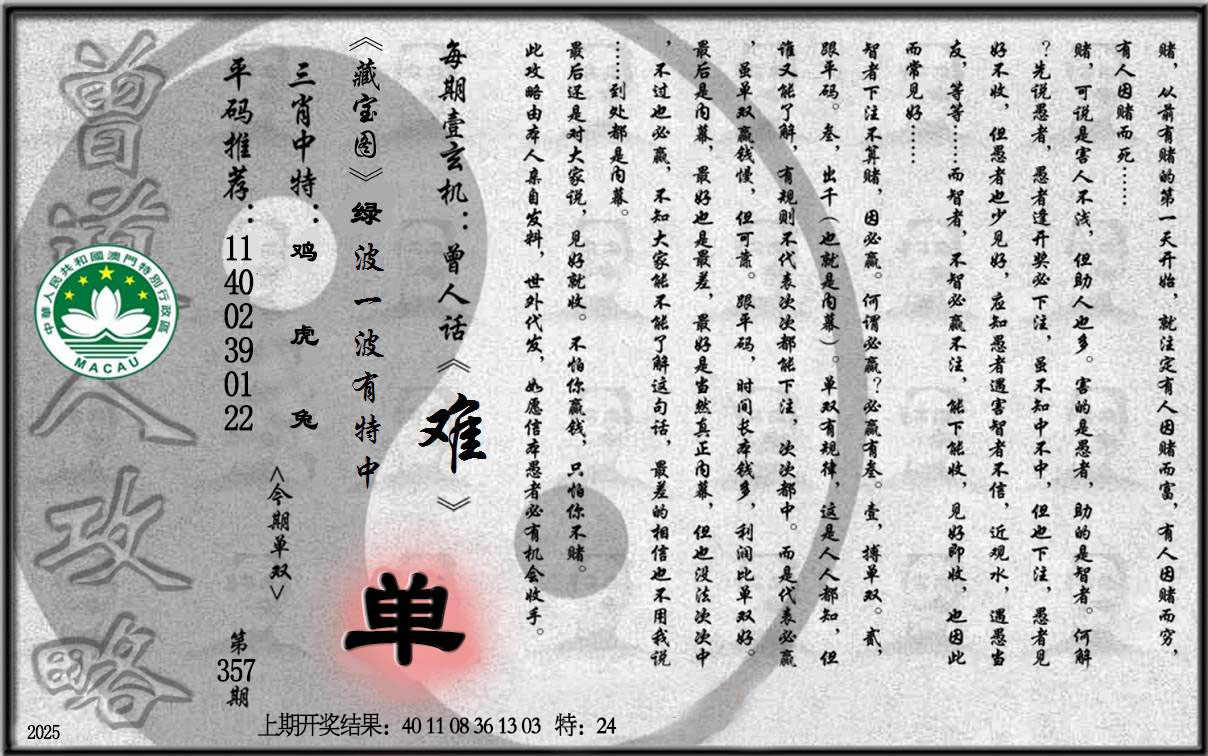 赌，从前有赌的第一天开始，就注定有人因赌而富，有人因赌而穷，
有人因赌而死……
赌，可说是害人不浅，但助人也多。害的是愚者，助的是智者。何解
？先说愚者，愚者逢开奖必下注，虽不知中不中，但也下注，愚者见
好不收，但愚者也少见好，应知愚者遇害智者不信，近观水，遇愚当
友，等等……而智者，不智必赢不注，能下能收，见好即收，也因此
而常见好……
智者下注不算赌，因必赢。何谓必赢？必赢有叁。壹，搏单双。贰，
跟平码。叁，出千（也就是内幕）。单双有规律，这是人人都知，但
谁又能了解，有规则不代表次次都能下注，次次都中。而是代表必赢
，虽单双赢钱慢，但可靠。跟平码，时间长本钱多，利润比单双好。
最后是内幕，最好也是最差，最好是当然真正内幕，但也没法次次中
，不过也必赢，不知大家能不能了解这句话，最差的相信也不用我说
……到处都是内幕。
最后还是对大家说，见好就收。不怕你赢钱，只怕你不赌。
此攻略由本人亲自发料，世外代发，如愿信本愚者必有机会收手。
每期壹玄机：曾人话《难》
《藏宝图》绿波一波有特中
三肖中特：鸡虎兔
平码推荐：11 40 02 39 01 22
<今期单双>
单
第357期
曾道人攻略
中華人民共和國澳門特別行政區
MACAU
上期开奖结果：40 11 08 36 13 03 特：24
2025